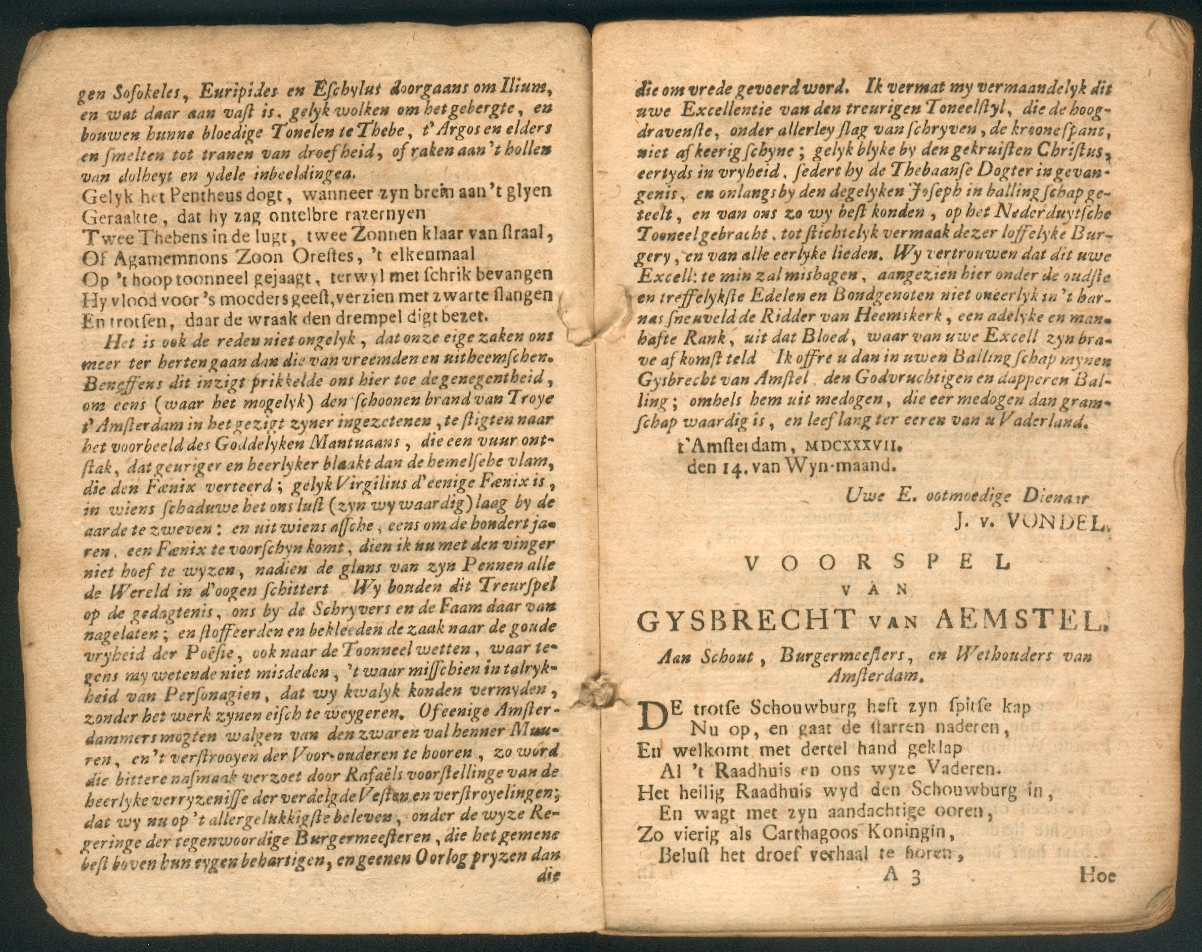 gen Sofokeles, Euripides en Eſchylus doorgaans om Ilium,
en wat daar aan vaſt is, gelyk wolken om het gebergte, en
bouwen hunne bloedige Tonelen te Thebe, t' Argos en elders
en ſmelten tot tranen van droefheid, of raken aan 't hollen
van dolheyt en ydele inbeeldingea.
Gelyk het Pentheus dogt, wanneer zyn brein aan 't glyen
Geraakte, dat hy zag ontelbre razernyen
Twee Thebens in de lugt, twee Zonnen klaar van ſtraal,
Of Agamemnons Zoon Oreſtes, 't elkenmaal
Op 't hoop toonneel gejaagt, terwyl met ſchrik bevangen
Hy vlood voor 's moeders geeſt, verzien met zwarte ſlangen
En trotſen, daar de wraak den drempel digt bezet.
Het is ook de reden niet ongelyk, dat onze eige zaken ons
meer ter herten gaan dan die van vreemden en uitheemſchen.
Beneffens dit inzigt prikkelde ons hier toe de genegentheid,
om eens (waar het mogelyk) den ſchoonen brand van Troye
t' Amſterdam in het gezigt zyner ingezetenen, te ſtigten naar
het voorbeeld des Goddelyken Mantuaans, die een vuur ont-
ſtak, dat geuriger en heerlyker blaakt dan de hemelſche vlam,
die den Fœnix verteerd; gelyk Virgilius d'eenige Fœnix is,
in wiens ſchaduwe het ons luſt (zyn wy waardig) laag by de
aarde te zweven: en uit wiens aſſche, eens om de hondert ja-
ren, een Fœnix te voorſchyn komt, dien ik nu met den vinger
niet hoef te wyzen, nadien de glans van zyn Pennen alle
de Wereld in d'oogen ſchittert Wy houden dit Treurſpel
op de gedagtenis, ons by de Schryvers en de Faam daar van
nagelaten; en ſtoffeerden en bekleeden de zaak naar de goude
vryheid der Poëſie, ook naar de Toonneel wetten, waar te-
gens my wetende niet misdeden, 't waar miſſchien in talryk-
heid van Perſonagien, dat wy kwalyk konden vermyden,
zonder het werk zynen eiſch te weygeren. Of eenige Amſter-
dammers mogten walgen van den zwaren val henner Muu-
ren, en 't verſtrooyen der Voor-ouderen te hooren, zo word
die bittere naſmaak verzoet door Rafaëls voorſtellinge van de
heerlyke verryzeniſſe der verdelgde Veſten en verſtroyelingen;
dat wy nu op 't allergelukkigſte beleven, onder de wyze Re-
geringe der tegenwoordige Burgermeeſteren, die het gemene
beſt boven hun eygen behartigen, en geenen Oorlog pryzen dan
die
die om vrede gevoerd word. Ik vermat my vermaandelyk dit
uwe Excellentie van den treurigen Toneelſtyl, die de hoog-
dravenſte, onder allerley ſlag van ſchryven, de kroone ſpant,
niet afkeerig ſchyne; gelyk blyke by den gekruiſten Chriſtus,
eertyds in vryheid, ſedert by de Thebaanſe Dogter in gevan-
genis, en onlangs by den degelyken Joſeph in balling ſchap ge-
teelt, en van ons zo wy beſt konden, op het Nederduytſche
Tooneel gebracht, tot ſtichtelyk vermaak dezer loffelyke Bur-
gery, en van alle eerlyke lieden. Wy vertrouwen dat dit uwe
Excell: te min zal mishagen, aangezien hier onder de oudſte
en treffelykſte Edelen en Bondgenoten niet oneerlyk in 't har-
nas ſneuveld de Ridder van Heemskerk, een adelyke en man-
hafte Rank, uit dat Bloed, waar van uwe Excell zyn bra-
ve afkomſt teld Ik offre u dan in uwen Balling ſchap mynen
Gysbrecht van Amſtel, den Godvruchtigen en dapperen Bal-
ling; omhels hem uit medogen, die eer medogen dan gram-
ſchap waardig is, en leef lang ter eeren van u Vaderland.
t'Amſterdam, MDCXXXVII.
den 14. van Wyn-maand.
Uwe E. ootmoedige Dienaar
J. v. VONDEL.
VOORSPEL
VAN
GYSBRECHT VAN AEMSTEL.
Aan Schout, Burgermeeſters, en Wethouders van
Amſterdam.
DE trotſe Schouwburg heft zyn ſpitſe kap
Nu op, en gaat de ſtarren naderen,
En welkomt met dertel hand geklap
Al 't Raadhuis en ons wyze Vaderen.
Het heilig Raadhuis wyd den Schouwburg in,
En wagt met zyn aandachtige ooren,
Zo vierig als Carthagoos Koningin,
Beluſt het droef verhaal te horen,
A 3 Hoe